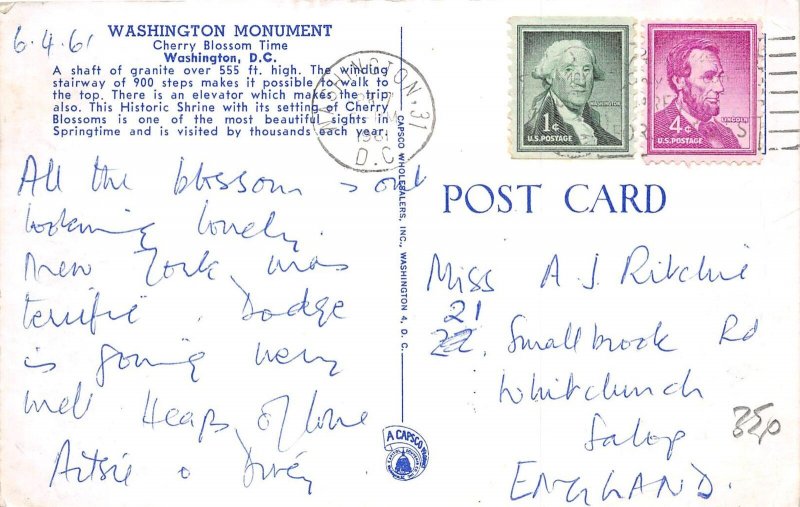 6.4.61
WASHINGTON MONUMENT
Cherry Blossom Time
Washington, D.C.
A shaft of granite over 555 ft. high. The winding
stairway of 900 steps makes it possible to walk to
the top. There is an elevator which makes the trip
also. This Historic Shrine with its setting of Cherry
Blossoms is one of the most beautiful sights in
Springtime and is visited by thousands each year.
WASHINGTON, 31
1961
D.C.
1¢
WASHINGTON
U.S. POSTAGE
4¢
LINCOLN
U.S. POSTAGE
All the blossom is out
looking lovely.
New York was
terrific. Dodge
is going very
well Heaps of love
CAPSCO WHOLESALERS, INC., WASHINGTON 4, D. C.
A CAPSCO
POST CARD
Miss A J Ritchie
21
22, Smallbrook Rd
Whitchurch
Salop
ENGLAND.
35p